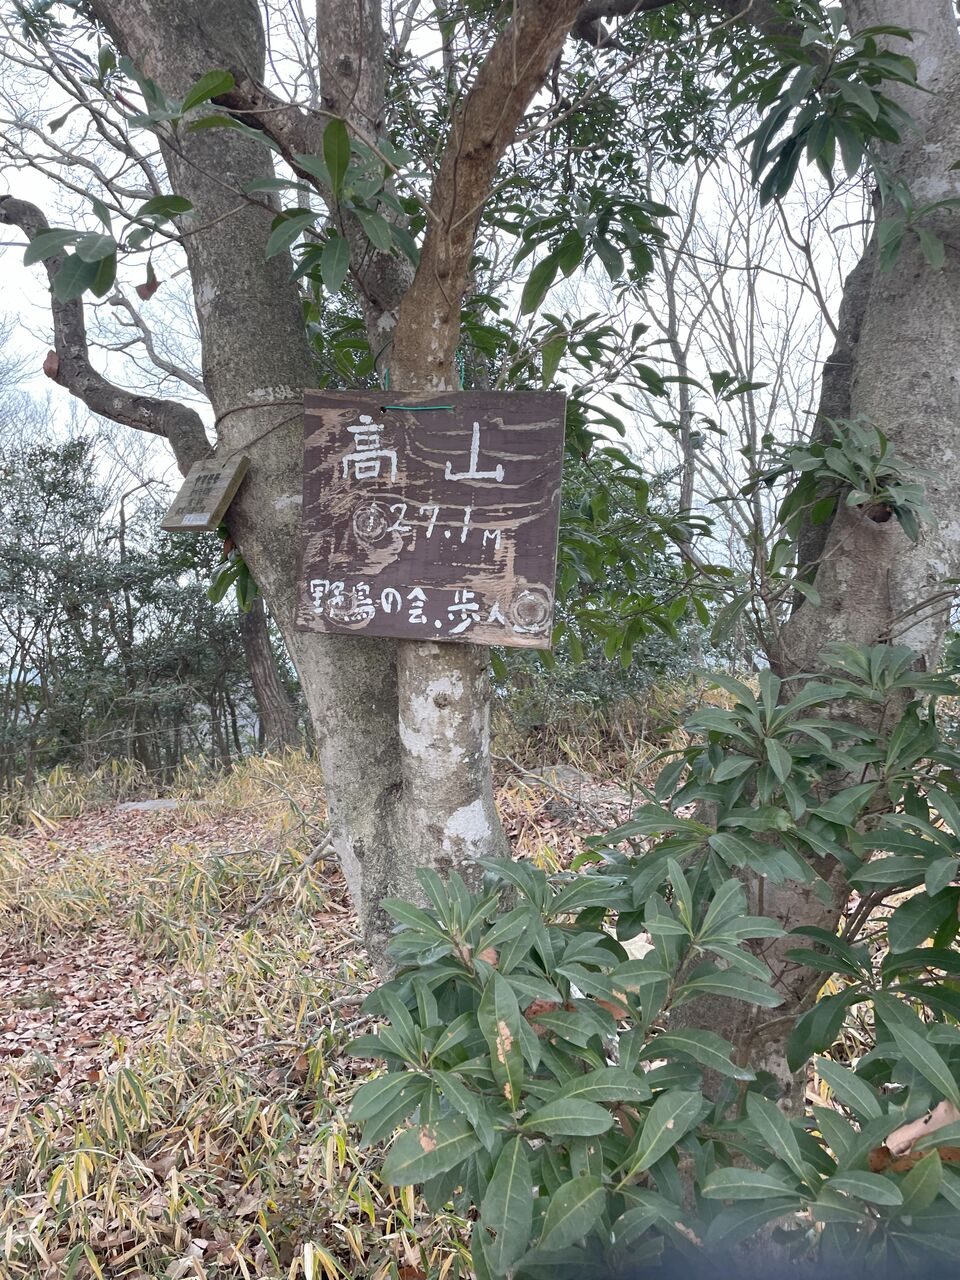 高山
127.1M
野鳥の会.歩人